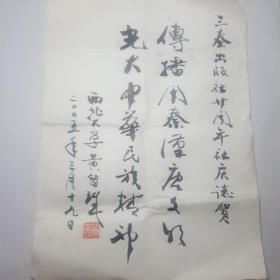 三秦出版社廿周年社庆志贺
傳播周秦漢唐文明
光大中華民族精神
西北大学黄留珠
二〇〇五年三月十九日